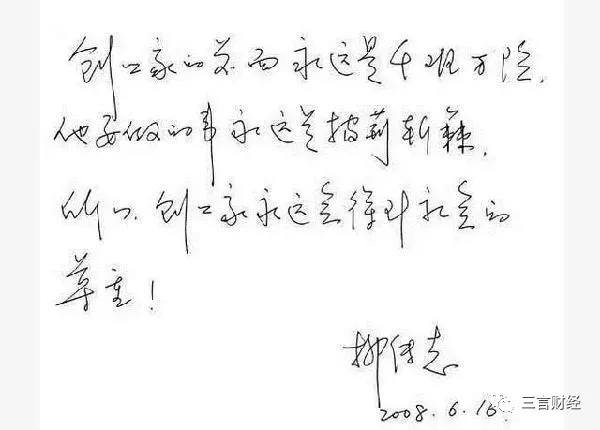 创业家的前面永远是千难万险,
他要做的事永远是披荆斩棘,
所以,创业家永远会得到社会的
尊重!
柳传志
2008.6.16.
三言财经